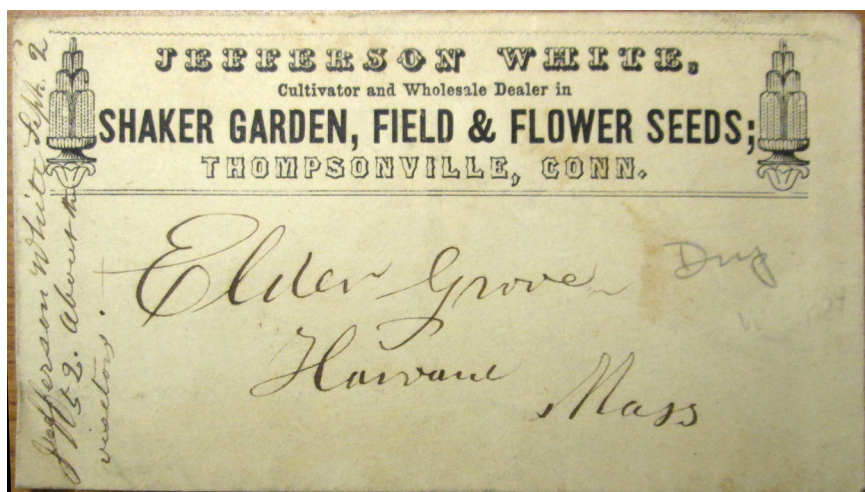 JEFFERSON WHITE,
Cultivator and Wholesale Dealer in
SHAKER GARDEN, FIELD & FLOWER SEEDS;
THOMPSONVILLE, CONN.
Elder Grove
Harvard
Mass
Jefferson White Sept. 2
52. About
visitors.